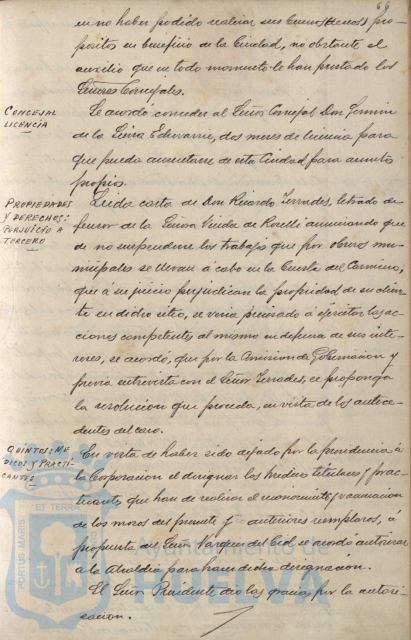 69
en no haber podido realizar sus buenos deseos y pro-
positos en beneficio de la Ciudad, no obstante el
auxilio que en todo momento le han prestado los
Señores Concejales.
CONCEJAL
LICENCIA
Se acordó conceder al Señor Concejal Don Fermin
de la Sierra Echevarria, dos meses de licencia para
que pueda ausentarse de esta Ciudad para asuntos
propios.
PROPIEDADES
Y DERECHOS:
PERJUICIO A
TERCERO
Leida carta de Don Ricardo Terrades, letrado de-
fensor de la Señora Viuda de anunciando que
de no suspenderse los trabajos que por obreros mu-
nicipales se llevan á cabo en la Cuesta del Carmen,
que á su juicio perjudican la propiedad de su clien-
te en dicho sitio, se veria precisado á ejercitar las ac-
ciones competentes al mismo en defensa de sus inte-
reses, se acordó, que por la Comision de Gobernacion y
previa entrevista con el Señor Terrades, se proponga
la resolucion que proceda, en vista de los antece-
dentes del caso.
QUINTOS: ME-
DICOS Y PRACTI-
CANTES
En vista de haber sido dejado por la presidencia á
la Corporacion el designar los medicos titulares y prac-
ticantes que han de realizar el reconocimiento y vacunacion
de los mozos del presente y anteriores reemplazos, á
propuesta del Señor Vazquez del Cid, se acordó autorizar
a la Alcaldia para hacer dicha designacion.
El Señor Presidente dió las gracias por la autori-
zacion.
PORTUS MARIS ET TERRAE
Ayuntamiento de
HUELVA